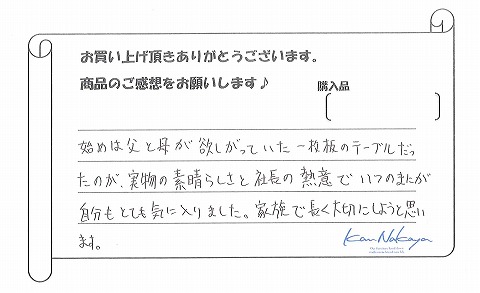 お買い上げ頂きありがとうございます。
商品のご感想をお願いします♪
購入品
始めは父と母が欲しがっていた一枚板のテーブルだっ
たのが、実物の素晴らしさと社長の熱意でいつのまにか
自分もとても気に入りました。家族で長く大切にしようと思い
ます。
Kan Nakaya